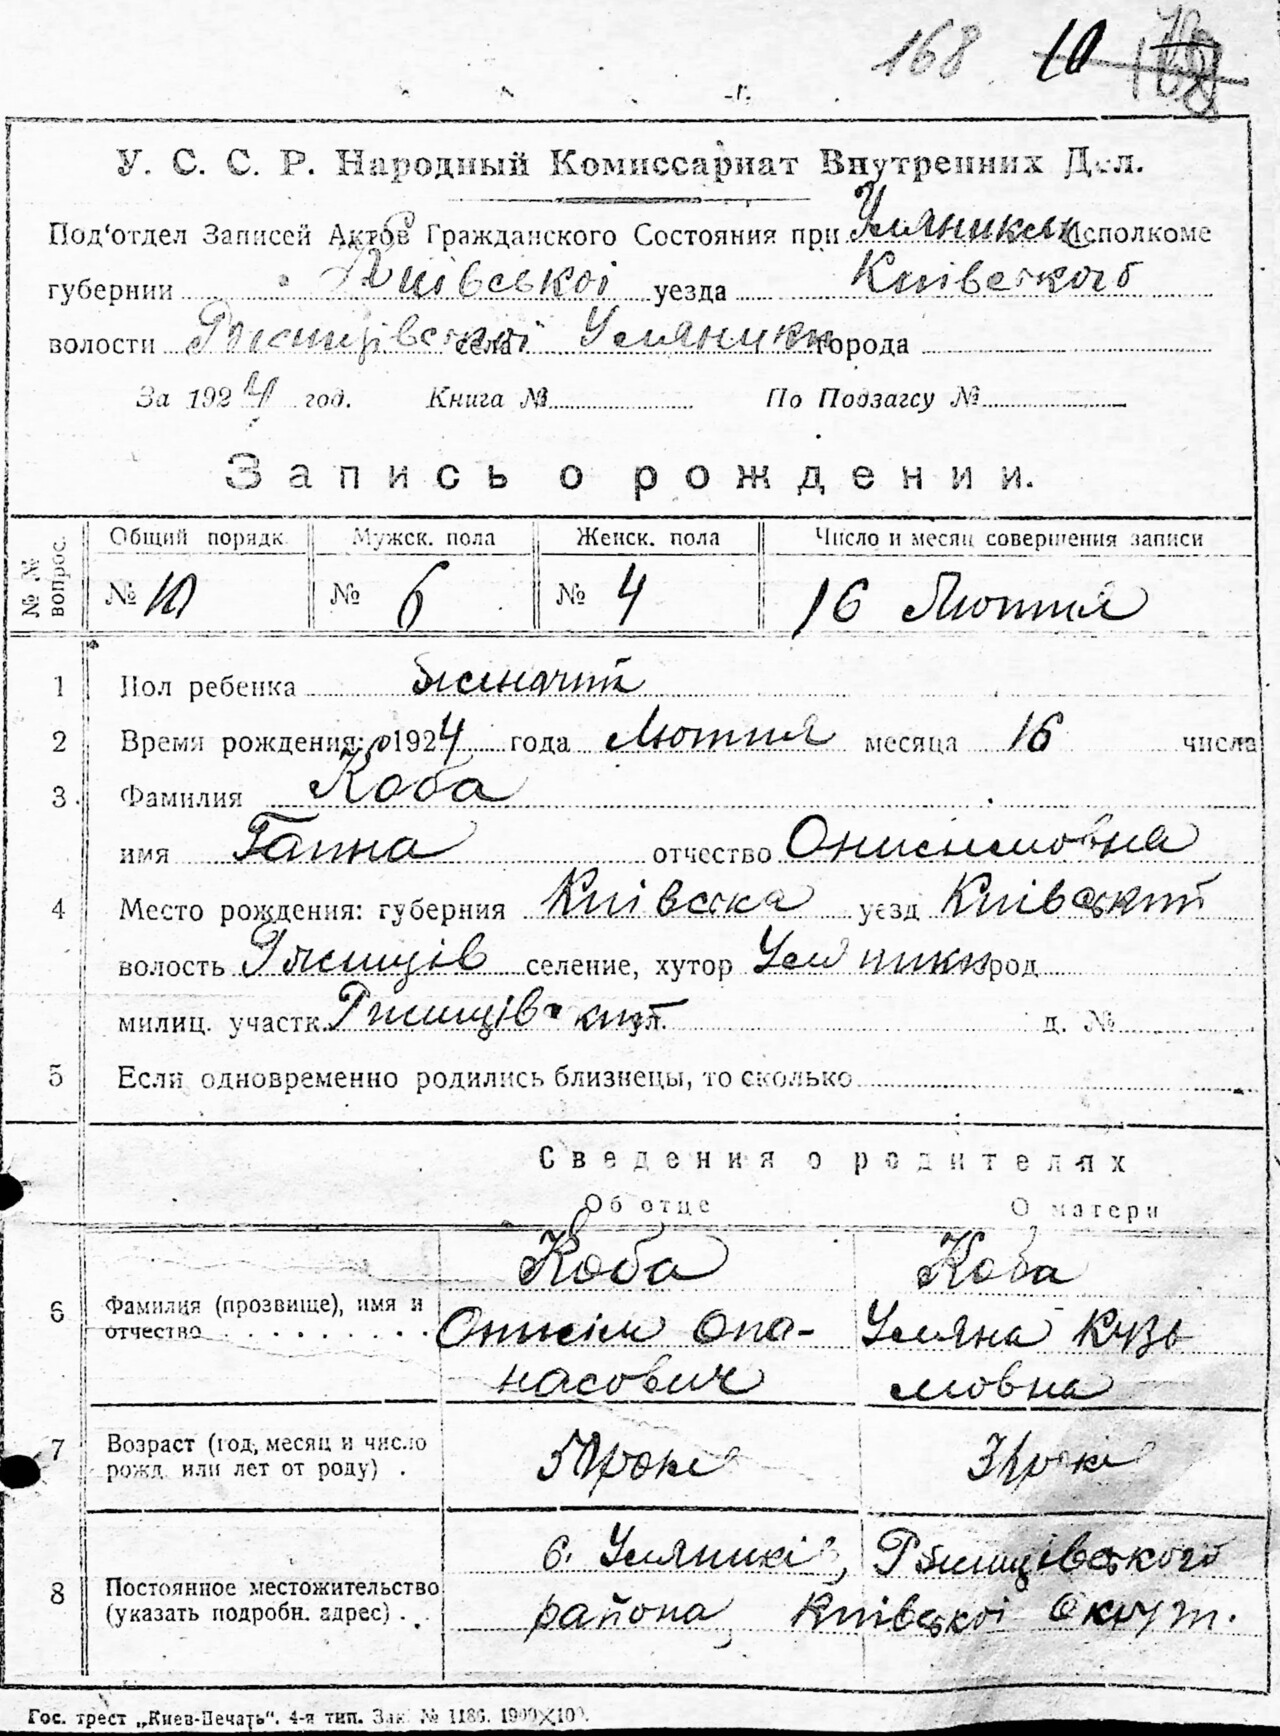 168 10
У. С. С. Р. Народный Комиссариат Внутренних Дел.
Под'отдел Записей Актов Гражданского Состояния при Уляники Исполкоме
губернии Київської уезда Київського
волости Ржищівської села Уляники города
За 1924 год. Книга № По Подзагсу №
Запись о рождении.
№ № вопрос. Общий порядк. Мужск. пола Женск. пола Число и месяц совершения записи
№ 10 № 6 № 4 16 Лютня
1 Пол ребенка жиночий
2 Время рождения: 1924 года Лютня месяца 16 числа
3 Фамилия Коба
имя Ганна отчество Онисимовна
4 Место рождения: губерния Київска уезд Київський
волость Ржищів селение, хутор Уляники город
милиц. участк. Ржищівский ул. д. №
5 Если одновременно родились близнецы, то сколько
Сведения о родителях
Об отце О матери
Коба Коба
6 Фамилия (прозвище), имя и отчество Онисім Опа- Уляна Кузь
насович мовна
7 Возраст (год, месяц и число рожд. или лет от роду) роки роки
8 Постоянное местожительство (указать подробн. адрес) с. Уляників, Ржищівського
района, Київської Округ.
Гос. трест „Киев-Печать“. 4-я тип. Зак. № 1186. 1900×100.